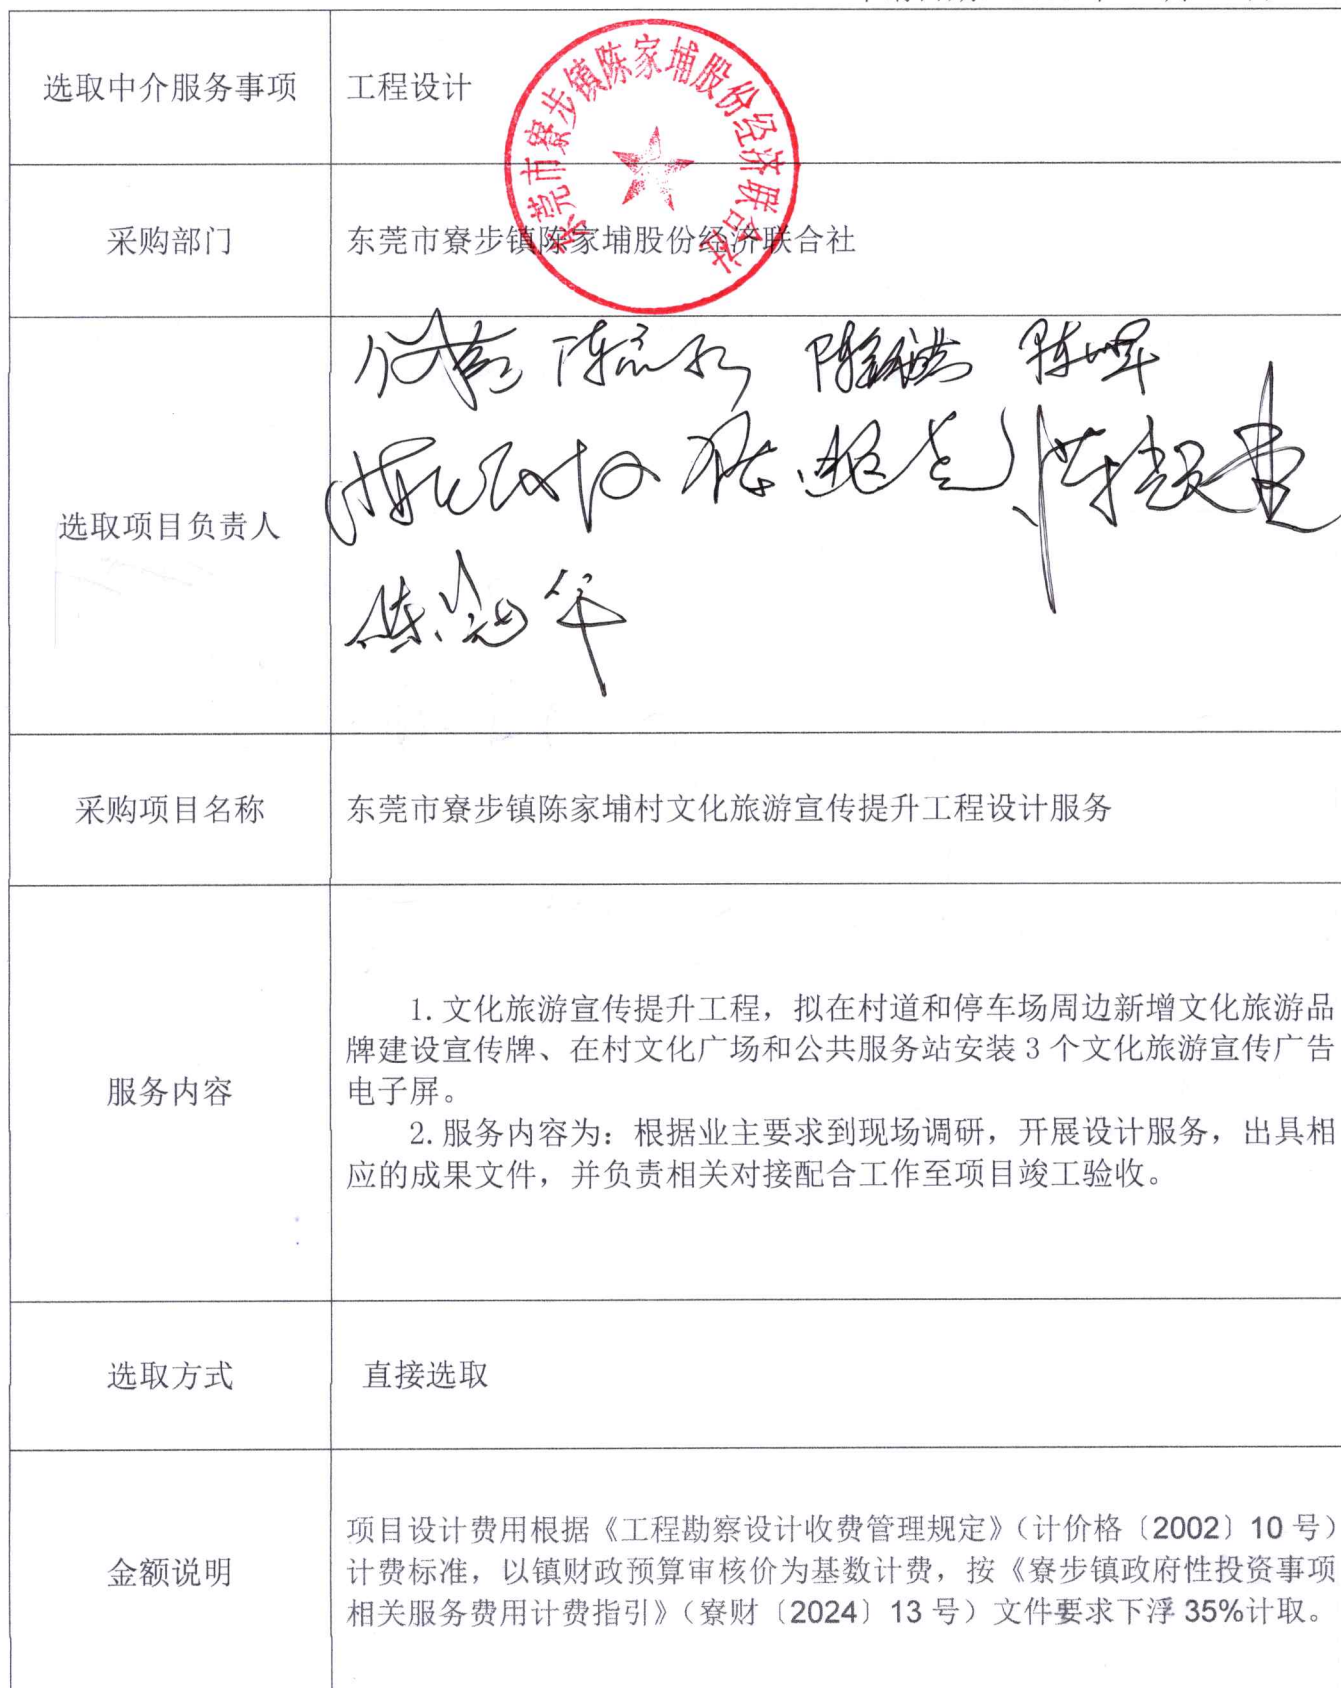 选取中介服务事项
工程设计
东莞市寮步镇陈家埔股份经济联合社
采购部门
东莞市寮步镇陈家埔股份经济联合社
选取项目负责人
采购项目名称
东莞市寮步镇陈家埔村文化旅游宣传提升工程设计服务
服务内容
1.文化旅游宣传提升工程，拟在村道和停车场周边新增文化旅游品
牌建设宣传牌、在村文化广场和公共服务站安装3个文化旅游宣传广告
电子屏。
2.服务内容为：根据业主要求到现场调研，开展设计服务，出具相
应的成果文件，并负责相关对接配合工作至项目竣工验收。
选取方式
直接选取
金额说明
项目设计费用根据《工程勘察设计收费管理规定》（计价格〔2002〕10号）
计费标准，以镇财政预算审核价为基数计费，按《寮步镇政府性投资事项
相关服务费用计费指引》（寮财〔2024〕13号）文件要求下浮35%计取。